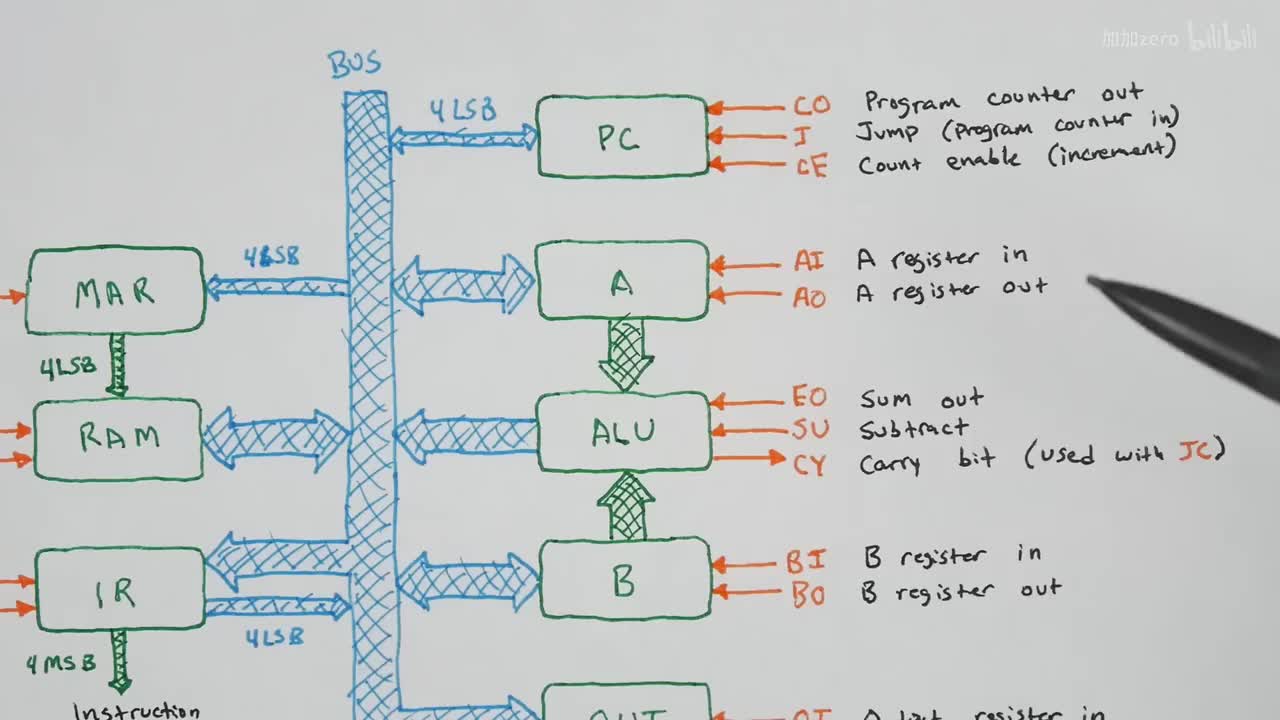 加加zero bilibili
BUS
4LSB
PC
CO Program counter out
I Jump (program counter in)
CE Count enable (increment)
MAR
4LSB
A
AI A register in
AO A register out
4LSB
RAM
ALU
EO Sum out
SU Subtract
CY Carry bit (used with JC)
IR
4LSB
B
BI B register in
BO B register out
4MSB
Instruction
OUT
OI
register in